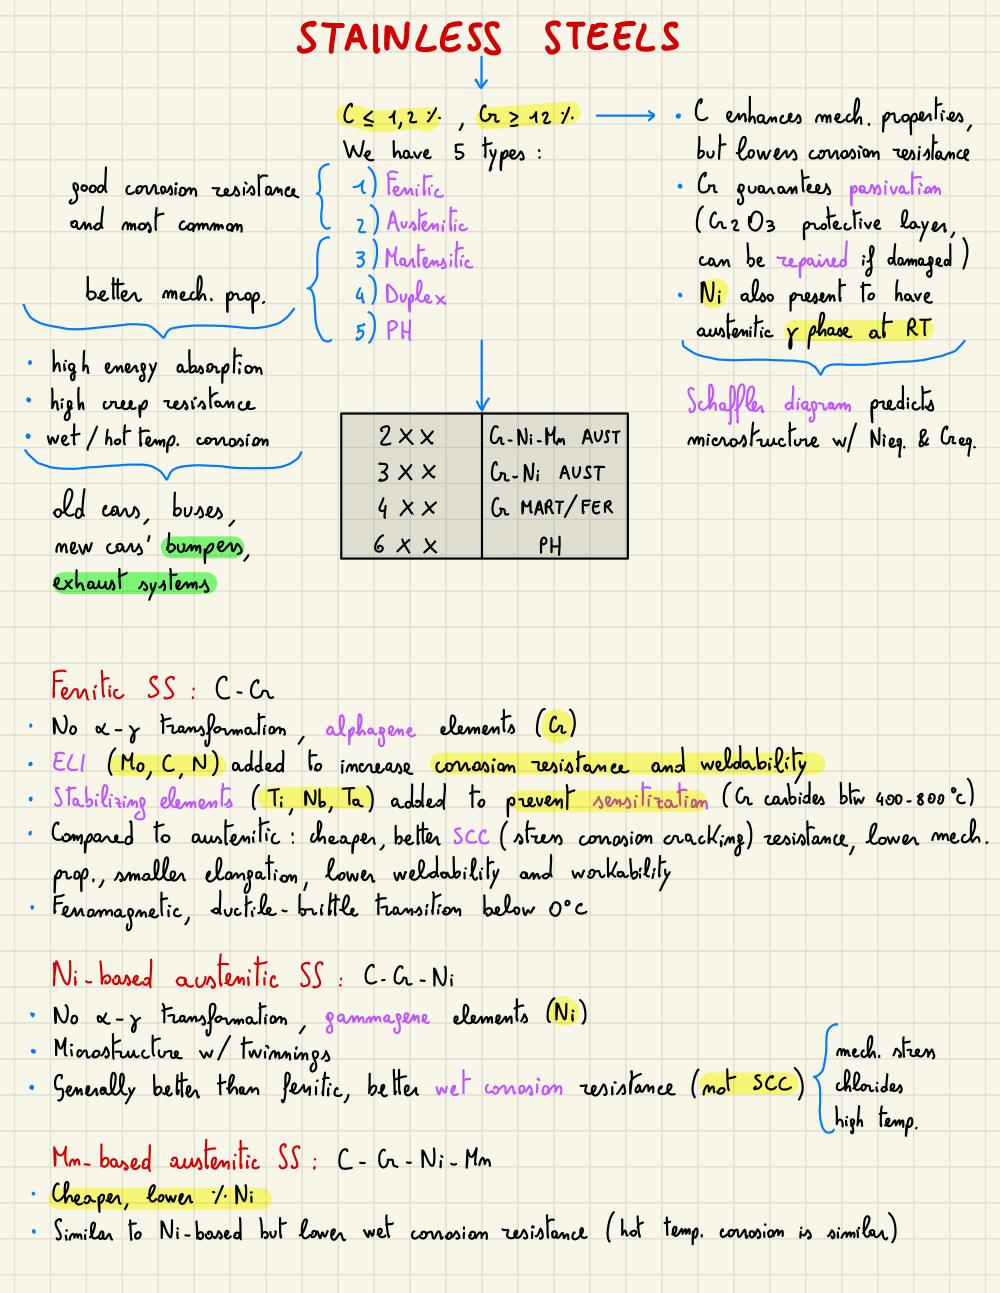 STAINLESS STEELS
C ≤ 1,2 % , Cr ≥ 12 %
We have 5 types :
1) Ferritic
2) Austenitic
3) Martensitic
4) Duplex
5) PH
good corrosion resistance
and most common
better mech. prop.
• high energy absorption
• high creep resistance
• wet / hot temp. corrosion
old cars, buses,
new cars' bumpers,
exhaust systems
• C enhances mech. properties,
but lowers corrosion resistance
• Cr guarantees passivation
(Cr2O3 protective layer,
can be repaired if damaged)
• Ni also present to have
austenitic γ phase at RT
Schaffler diagram predicts
microstructure w/ Nieq. & Creq.
2 X X Cr-Ni-Mn AUST
3 X X Cr-Ni AUST
4 X X Cr MART/FER
6 X X PH
Ferritic SS : C - Cr
• No α-γ transformation, alphagene elements (Cr)
• ELI (Mo, C, N) added to increase corrosion resistance and weldability
• Stabilizing elements (Ti, Nb, Ta) added to prevent sensitization (Cr carbides btw 400-800 °C)
• Compared to austenitic : cheaper, better SCC (stress corrosion cracking) resistance, lower mech.
prop., smaller elongation, lower weldability and workability
• Ferromagnetic, ductile-brittle transition below 0°C
Ni-based austenitic SS : C - Cr - Ni
• No α-γ transformation, gammagene elements (Ni)
• Microstructure w/ twinnings
• Generally better than ferritic, better wet corrosion resistance (not SCC)
mech. stress
chlorides
high temp.
Mn-based austenitic SS : C - Cr - Ni - Mn
• Cheaper, lower % Ni
• Similar to Ni-based but lower wet corrosion resistance (hot temp. corrosion is similar)